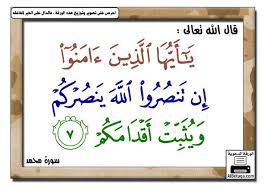 احرص على تصوير وتوزيع هذه الورقة ، فالدال على الخير كفاعله
قال الله تعالى :
يَـٰٓأَيُّهَا ٱلَّذِينَ ءَامَنُوٓا۟
إِن تَنصُرُوا۟ ٱللَّهَ يَنصُرْكُمْ
وَيُثَبِّتْ أَقْدَامَكُمْ ٧
سورة محمد
الورقة الدعوية